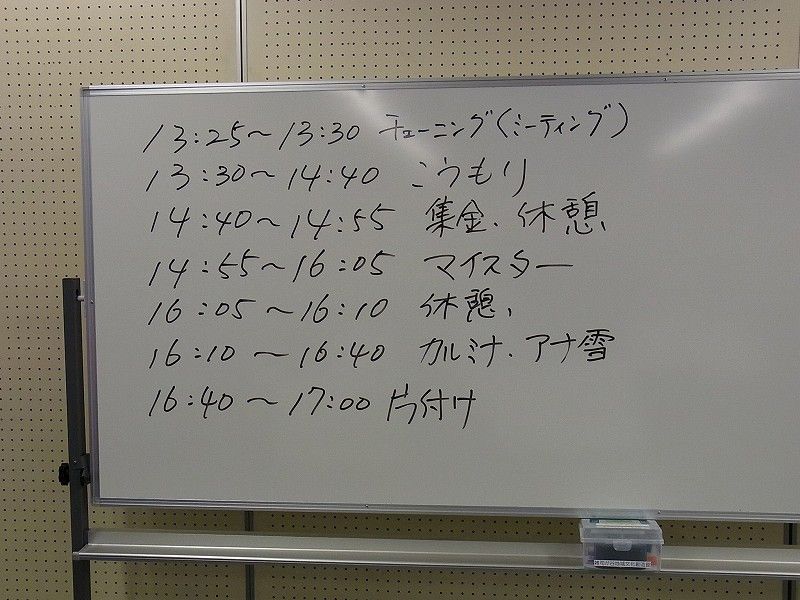 13:25〜13:30 チューニング(ミーティング)
13:30〜14:40 こうもり
14:40〜14:55 集金、休憩
14:55〜16:05 マイスター
16:05〜16:10 休憩、
16:10〜16:40 カルミナ、アナ雪
16:40〜17:00 片付け